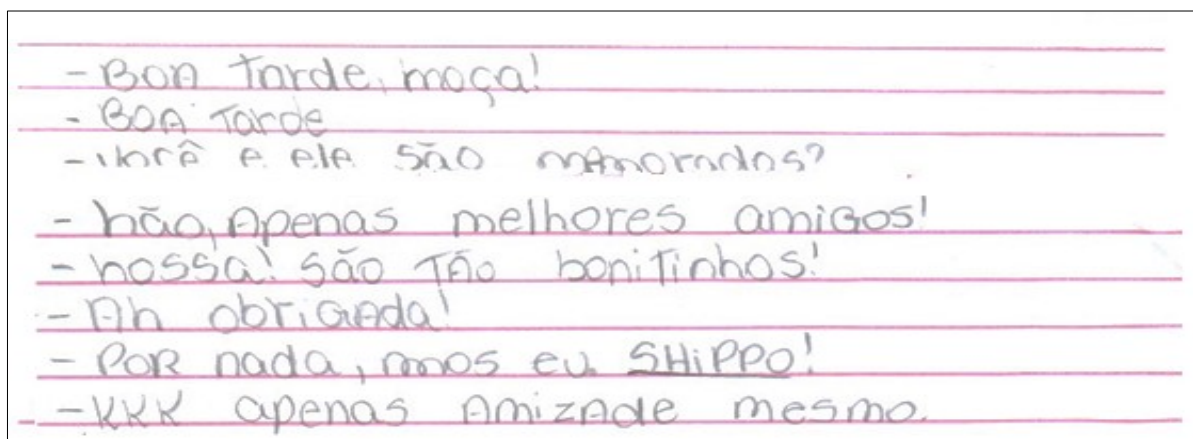 - Boa tarde, moça!
- Boa tarde
- você e ele são namorados?
- não, Apenas melhores amigos!
- nossa! são Tão boniTinhos!
- Ah obrigada!
- POR nada, mas eu SHiPPO!
- KKK apenas Amizade mesmo.